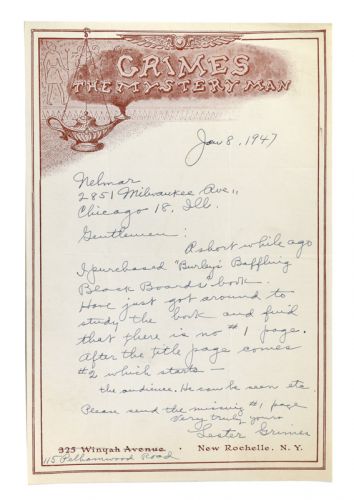 GRIMES
THE MYSTERY MAN
Jan 8, 1947
Nelmar
2851 Milwaukee Ave.,
Chicago 18, Ill.
Gentlemen:
A short while ago
I purchased "Burley's Baffling
Black Boards" book.
Have just got around to
study the book and find
that there is no #1 page.
After the title page comes
#2 which starts —
the audience. He saw he seen etc.
Please send the missing #1 page
Very truly yours
Lester Grimes
325 Winyah Avenue · New Rochelle, N. Y.
115 Pelhamwood Road